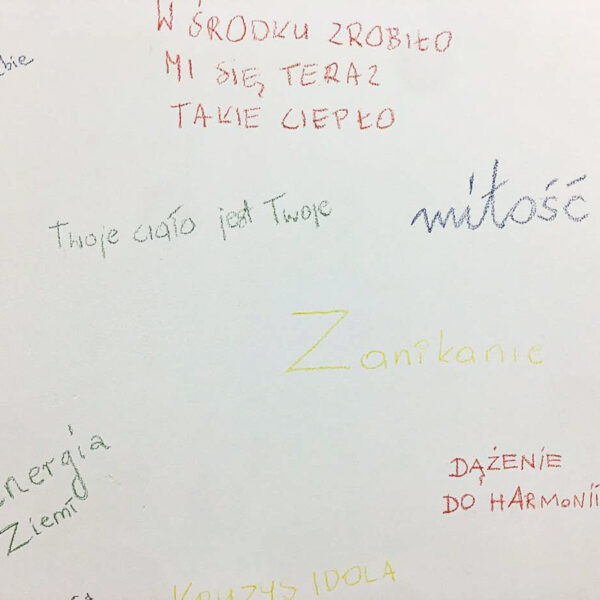 W ŚRODKU ZROBIŁO
MI SIĘ TERAZ
TAKIE CIEPŁO
miłość
Twoje ciało jest Twoje
Zanikanie
energia
Ziemi
DĄŻENIE
DO HARMONII
KRYZYS IDOLA